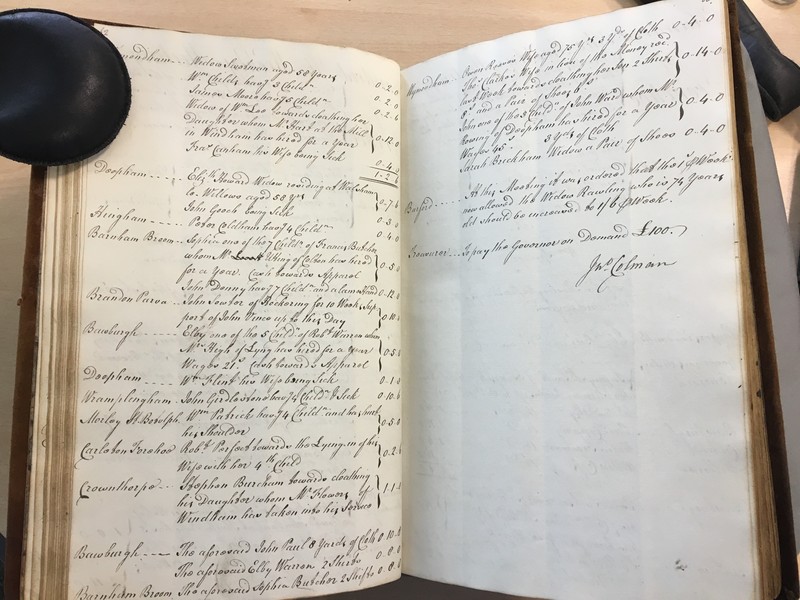 Wymondham... Widow Swatman aged 50 Years 0-2-0
Wm Childs hav'g 3 Childn 0-2-0
James Moore hav'g 5 Childn 0-2-6
Widow of Wm Lee towards cloathing her
Daughter whom Mr Hart at the Mill
in Windham has hired for a Year 0-12-0
Fras Canham his Wife being Sick 0-4-0
1-2-6
Deopham.... Elizth Howard Widow residing at Walsham
le Willows aged 58 Yrs 0-7-6
John Gooch being Sick 0-3-0
Hingham.... Peter Coldham hav'g 4 Childn 0-4-0
Barnham Broom.. Sophia one of the 7 Childn of Francis Butcher
whom Mr King of Colton has hired
for a Year. Cash towards Apparel 0-5-0
John Denny hav'g 7 Childn and a lame Hand 0-12-0
Brandon Parva.. John Sowter of Hockering for 10 Weeks Sup-
port of John Vince up to this Day 0-10-
Bawburgh.... Elby one of the 5 Childn of Robt Warren whom
Mr High of Lyng has hired for a Year
Wages 21s Cash towards Apparel 0-5-
Deopham.... Wm Flint his Wife being Sick 0-1-0
Wramplingham. John Girdlestone hav'g 4 Childn & Sick 0-10-6
Morley St Botolph. Wm Patrick hav'g 4 Childn and has hurt
his Shoulder 0-5-0
Carleton Forehoe Robt Perfect towards the Lying in of his
Wife with her 4th Child 0-2-
Crownthorpe... Stephen Burcham towards cloathing
his Daughter whom Mr Flowers of
Windham has taken into his Service 1-1-
Bawburgh.... The aforesaid John Paul 8 Yards of Cloth 0-10-
The aforesaid Elby Warren 2 Shifts 0-8-0
Barnham Broom The aforesaid Sophia Butcher 2 Shifts 0-8-
Wymondham.. Owen Reeves Wife aged 75 Yrs 3 Yds of Cloth 0-4-0
Thos Clarkes Wife in lieu of the Money red
last Week towards cloathing her Son 2 Shirts
8s and a Pair of Shoes 6s 0-14-0
John one of the 3 Childn of John Ward whom Mr
of Deopham has hired for a Year
Wages 45s 3 Yds of Cloth 0-4-0
Sarah Brickham Widow a Pair of Shoes 0-4-0
At this Meeting it was ordered that the 1s Week
now allowed the Widow Rawling who is 74 Years
old should be increased to 1/6 Week.
Treasurer... To pay the Governor on Demand £100.
Jno Colman